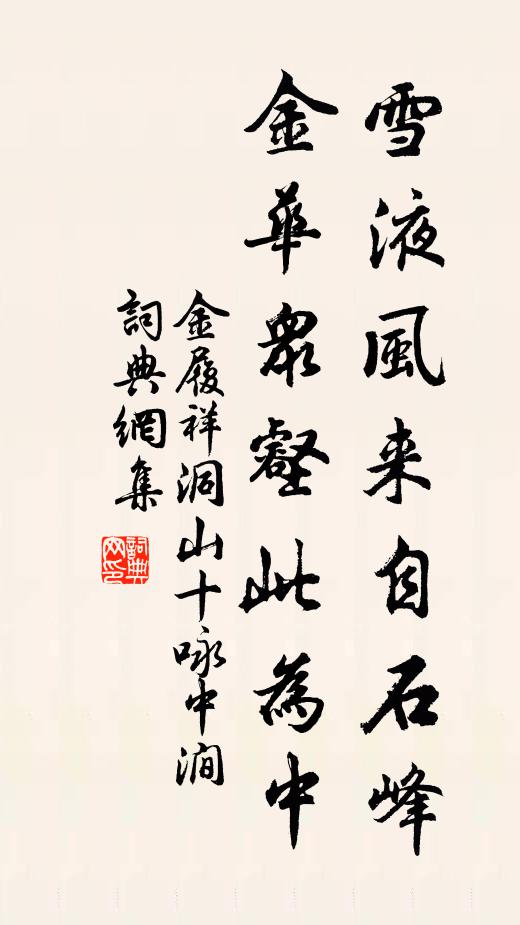 雪液風来自石峰
金華眾壑此為中
金履祥洞山十咏中澗
詞典網集
詞典网印